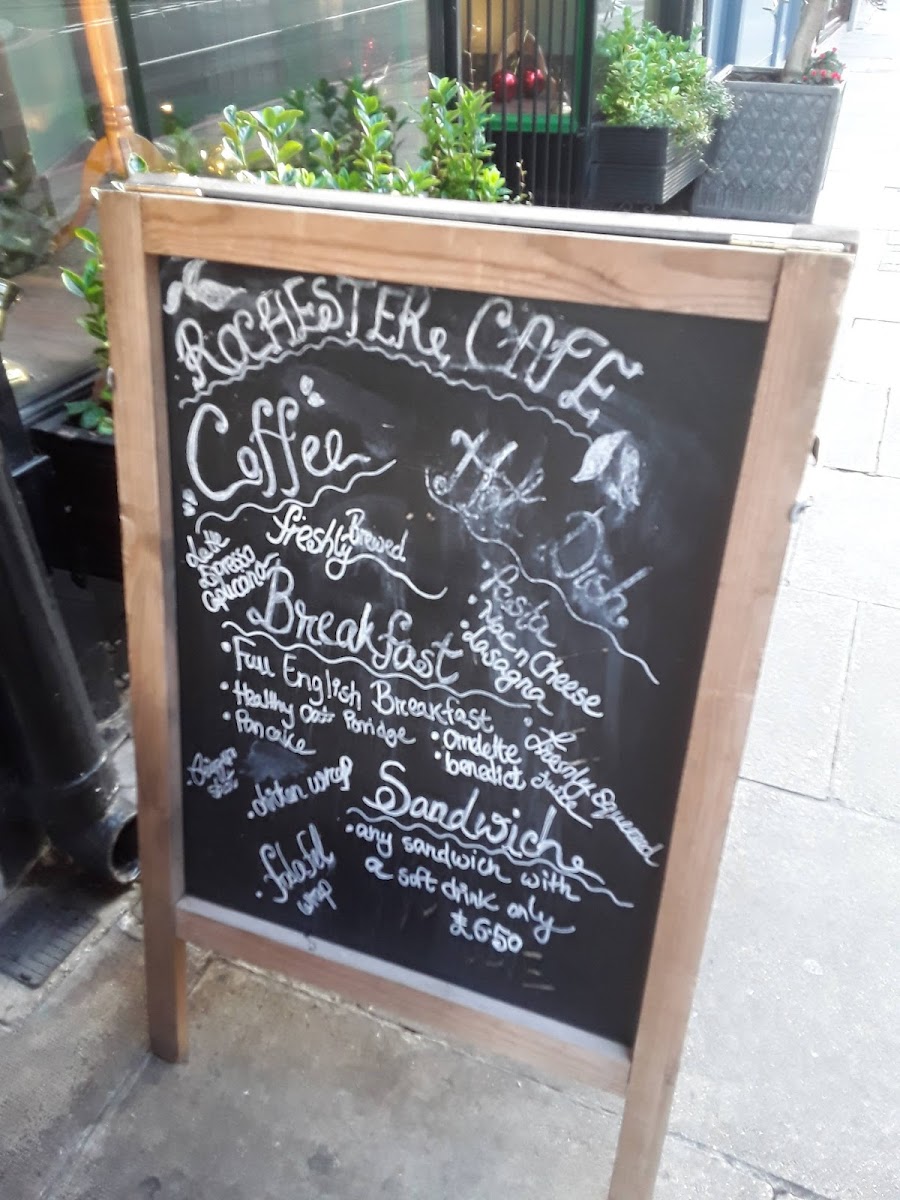 ROCHESTER CAFE
Coffee
Freshly Brewed
Latte
Espresso
Hot Dish
• Pasta
• Mac n Cheese
• Lasagna
Breakfast
• Full English Breakfast
• Healthy Oats Porridge
• Pancake
• Omelette
• benedict
• Freshly Squeezed
Juice
• chicken wrap
• falafel
wrap
Sandwich
• any sandwich with
a soft drink only
£6.50